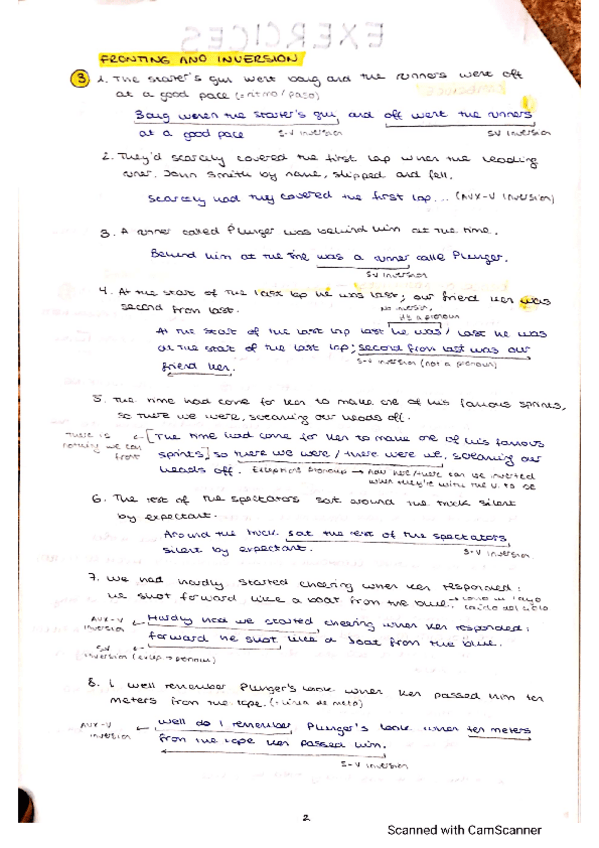 EXERCICES
FRONTING AND INVERSION
3 1. The starter's gun went bang and the runners went off
at a good pace (=ritmo/paso)
Bang went the starter's gun and off went the runners
at a good pace S-V inversion SV inversion
2. They'd scarcely covered the first lap when the leading
runer, John Smith by name, slipped and fell.
Scarcely had they covered the first lap... (AUX-V inversion)
3. A runner called Plunger was behind him at the time.
Behind him at the time was a runner calle Plunger.
SV inversion
4. At the start of the last lap he was last; our friend Ken was
second from last.
No inversion,
it's a pronoun
At the start of the last lap last he was / Last he was
at the start of the last lap; second from last was our
friend Ken. S-V inversion (not a pronoun)
5. The time had come for Ken to make one of his famous sprints,
so there we were, screaming our heads off.
There is
nothing we can
front
[The time had come for Ken to make one of his famous
sprints] so there we were / there were we, screaming our
heads off. Exceptions pronoun → now here/there can be inverted
when they're with the v. to be
6. The rest of the spectators sat around the track silent
by expectant.
Around the track sat the rest of the spectators
silent by expectant. S-V inversion
7. We had hardly started cheering when Ken responded:
he shot forward like a boat from the blue. → como un rayo
caído del cielo
AUX-V
inversion
Hardly had we started cheering when Ken responded:
forward he shot like a boat from the blue.
SV
inversion (excep → pronoun)
8. I well remember Plunger's look when Ken passed him ten
meters from the tape. (=línea de meta)
AUX-V
inversion
Well do I remember Plunger's look when ten meters
from the tape Ken passed him.
S-V inversion
2.
Scanned with CamScanner